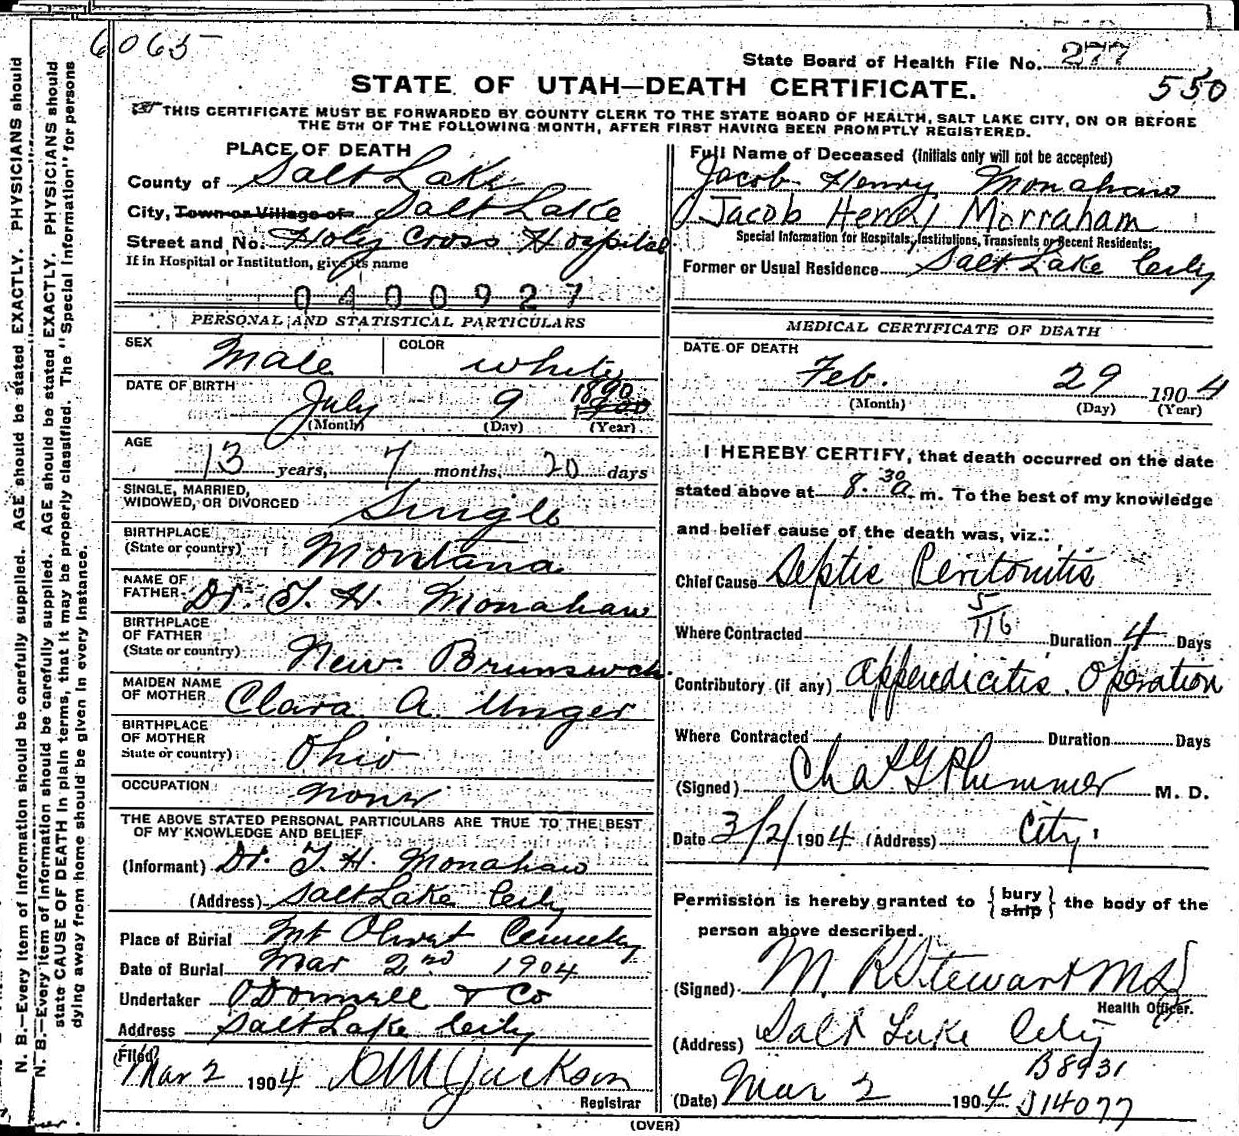 6065
State Board of Health File No. 277
550
STATE OF UTAH—DEATH CERTIFICATE.
THIS CERTIFICATE MUST BE FORWARDED BY COUNTY CLERK TO THE STATE BOARD OF HEALTH, SALT LAKE CITY, ON OR BEFORE
THE 5TH OF THE FOLLOWING MONTH, AFTER FIRST HAVING BEEN PROMPTLY REGISTERED.
PLACE OF DEATH
County of Salt Lake
City, Town or Village of Salt Lake
Street and No. Holy Cross Hospital
If in Hospital or Institution, give its name
0400927
Full Name of Deceased (Initials only will not be accepted)
Jacob Henry Monahaw
Jacob Henry Morraham
Special Information for Hospitals, Institutions, Transients or Recent Residents:
Former or Usual Residence Salt Lake City
PERSONAL AND STATISTICAL PARTICULARS
SEX Male
COLOR White
DATE OF BIRTH
July 9 1890
(Month) (Day) (Year)
AGE
13 years, 7 months, 20 days
SINGLE, MARRIED,
WIDOWED, OR DIVORCED Single
BIRTHPLACE
(State or country) Montana
NAME OF
FATHER Dr. T. H. Monahaw
BIRTHPLACE
OF FATHER
(State or country) New Brunswck
MAIDEN NAME
OF MOTHER Clara A. Unger
BIRTHPLACE
OF MOTHER
State or country) Ohio
OCCUPATION None
THE ABOVE STATED PERSONAL PARTICULARS ARE TRUE TO THE BEST
OF MY KNOWLEDGE AND BELIEF
(Informant) Dr. T. H. Monahaw
(Address) Salt Lake City
Place of Burial Mt Olivet Cemetery
Date of Burial Mar 2nd 1904
Undertaker O'Donnell & Co
Address Salt Lake City
Filed
Mar 2 1904 Jackson
Registrar
MEDICAL CERTIFICATE OF DEATH
DATE OF DEATH
Feb. 29 1904
(Month) (Day) (Year)
I HEREBY CERTIFY, that death occurred on the date
stated above at 8.30 a. m. To the best of my knowledge
and belief cause of the death was, viz.:
Chief Cause Septic Peritonitis
5
116
Where Contracted Duration 4 Days
Contributory (if any) Appendicitis Operation
Where Contracted Duration Days
(Signed) Chas G Plummer M. D.
Date 3/2/1904 (Address) City
Permission is hereby granted to {bury ship} the body of the
person above described.
(Signed) M. R. Stewart MD
Health Officer.
(Address) Salt Lake City
B8931
(Date) Mar 2 1904 J14077
(OVER)
N. B.—Every item of information should be carefully supplied. AGE should be stated EXACTLY. PHYSICIANS should
N. B.—Every item of information should be carefully supplied. AGE should be stated EXACTLY. PHYSICIANS should
state CAUSE OF DEATH in plain terms, that it may be properly classified. The "Special Information" for persons
dying away from home should be given in every instance.